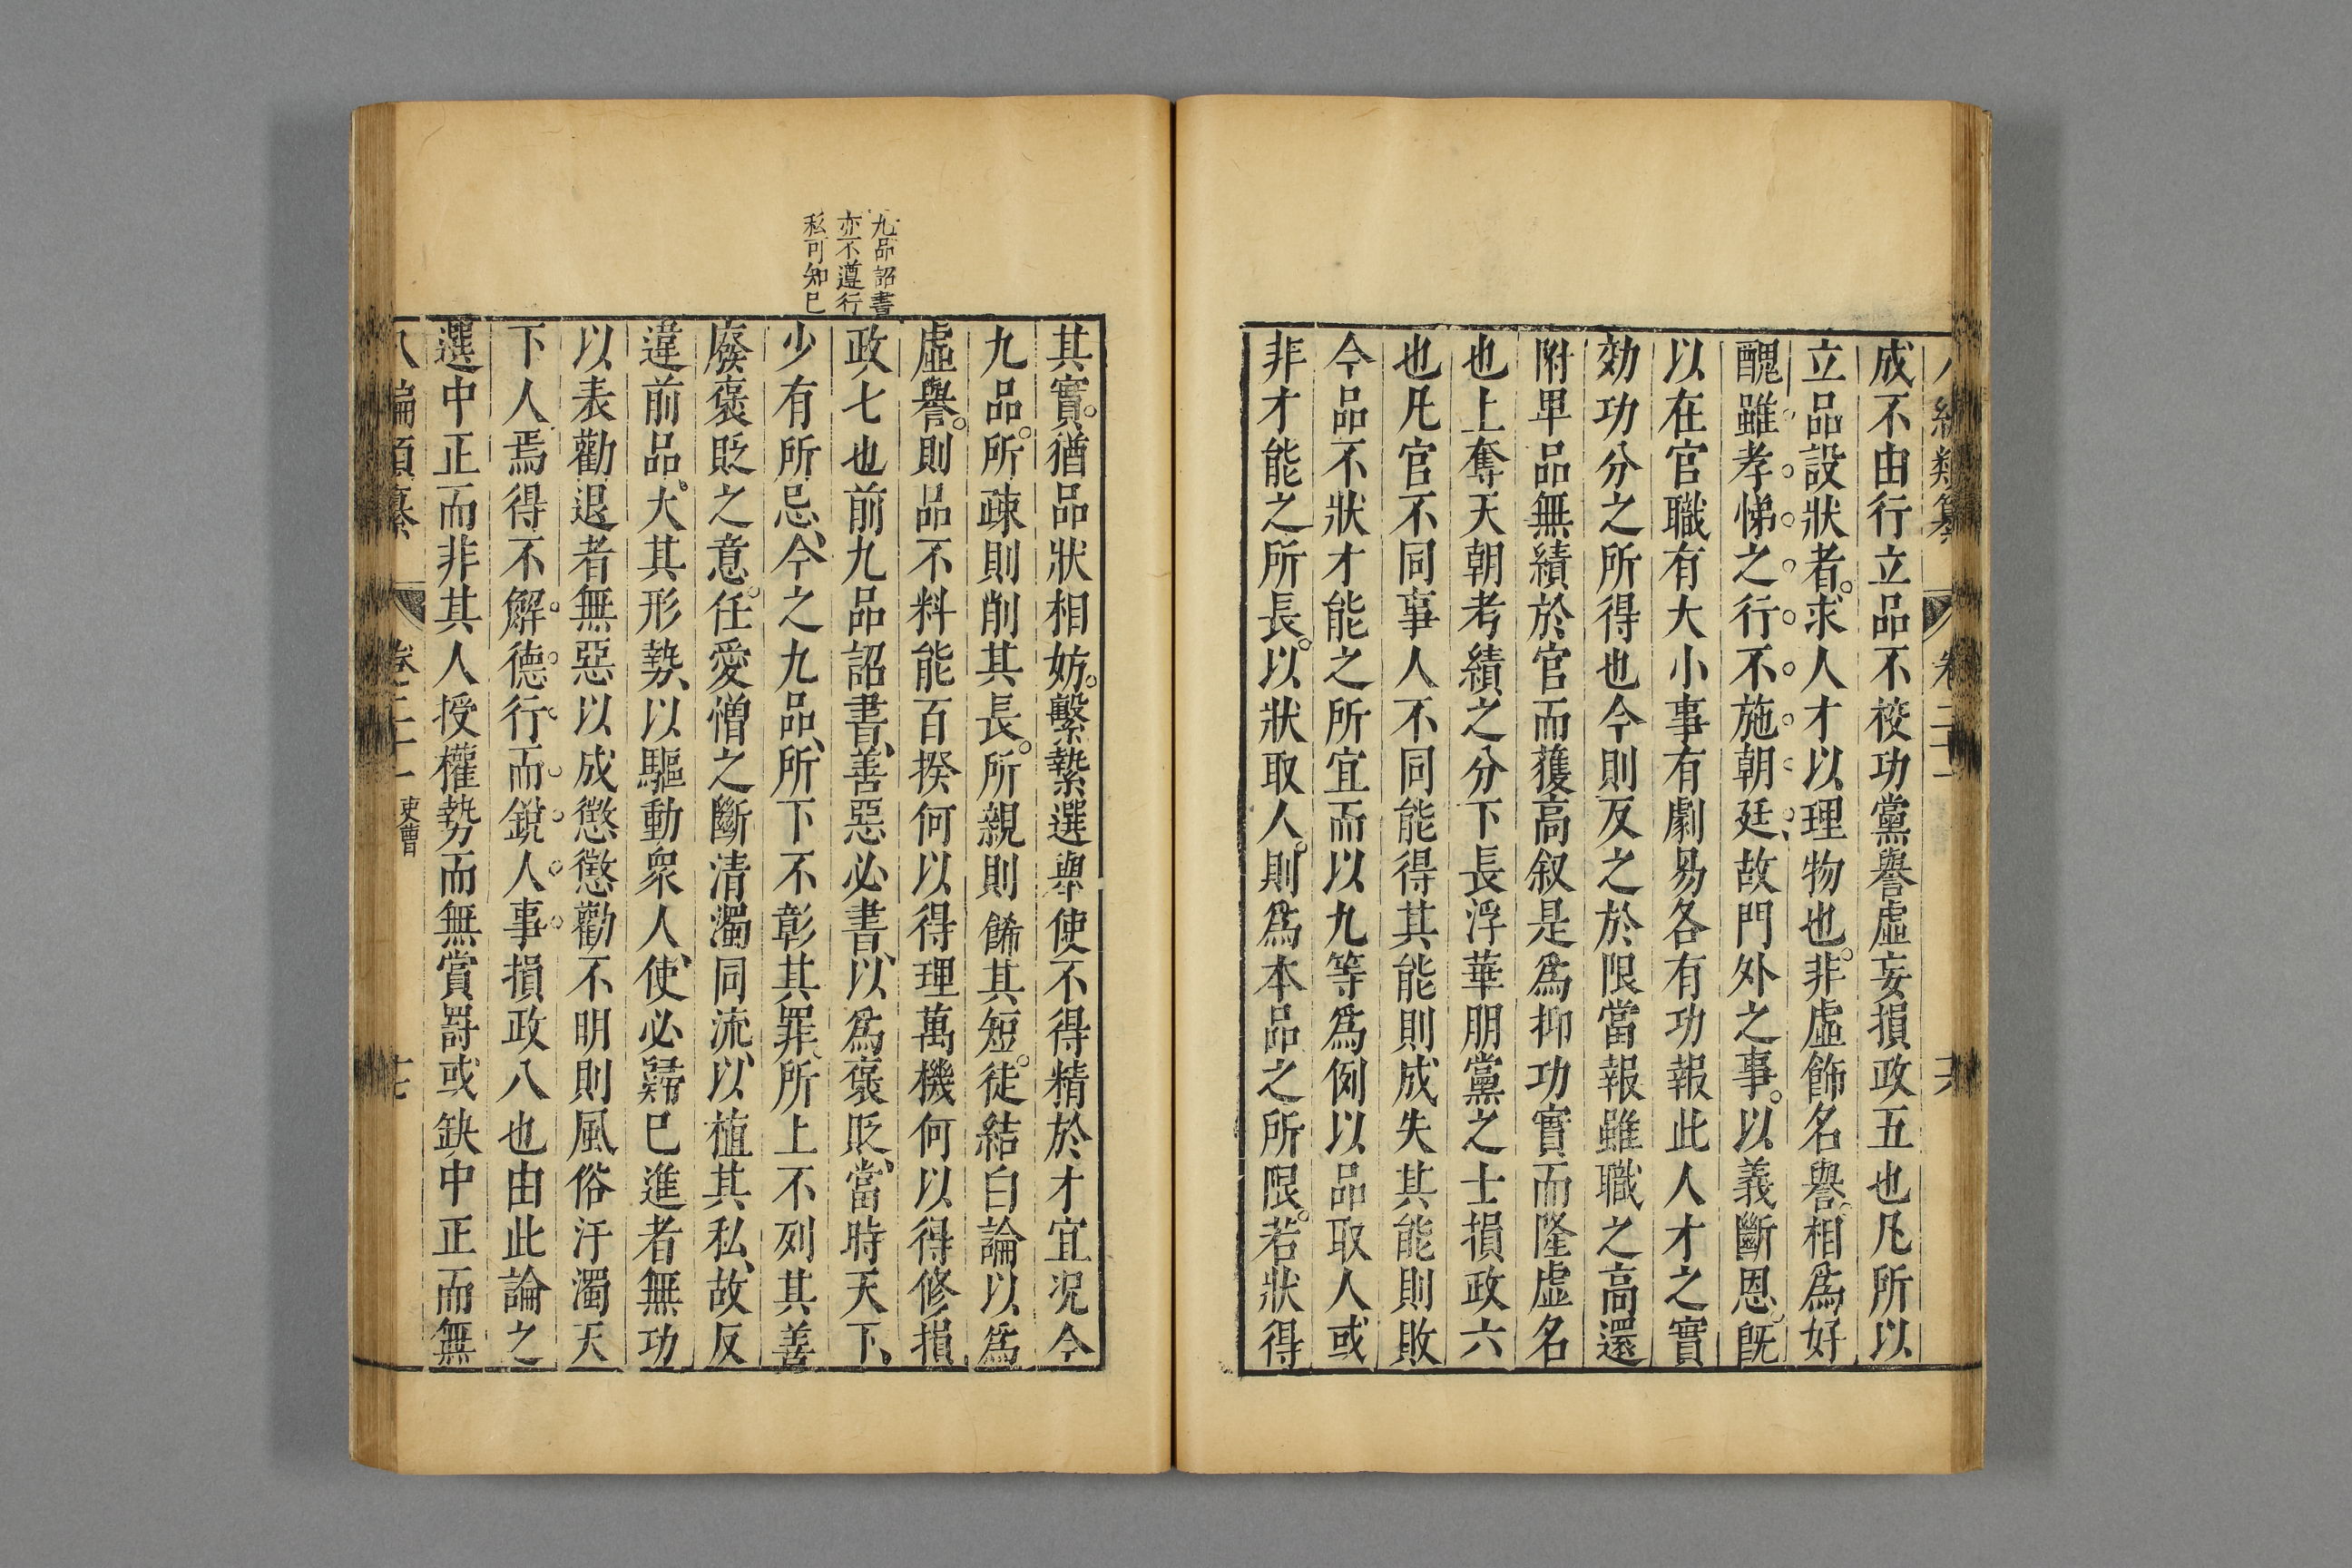 成不由行立品不校功黨譽虛妄損政五也凡所以
立品設狀者。求人才以理物也。非虛飾名譽。相爲好
醜雖孝悌之行不施朝廷、故門外之事。以義斷恩。旣
以在官職有大小事有劇易各有功報此人才之實
効功分之所得也今則反之於限當報雖職之高還
附卑品無績於官而獲高叙是爲抑功實而隆虛名
也上奪天朝考績之分下長浮華朋黨之士損政六
也凡官不同事人不同能得其能則成失其能則敗
今品不狀才能之所宜而以九等爲例以品取人或
非才能之所長。以狀取人。則爲本品之所限。若狀得
其實。猶品狀相妨。繫縶選舉使不得精於才宜況今
九品。所疎則削其長。所親則飾其短。徒結白論以爲
虛譽。則品不料能百揆何以得理萬機何以得修損
政七也前九品詔書、善惡必書、以爲褒貶、當時天下、
少有所忌、今之九品、所下不彰其罪、所上不列其善
廢褒貶之意。任愛憎之斷清濁同流、以植其私、故反
違前品、大其形勢、以驅動衆人、使必歸已進者無功
以表勸退者無惡以成懲懲勸不明則風俗汙濁天
下人焉得不解德行而銳人事損政八也由此論之
選中正而非其人授權勢而無賞罰或缺中正而無
九品詔書
亦不遵行
私可知已
八編類纂 卷二十一 吏曹 十七